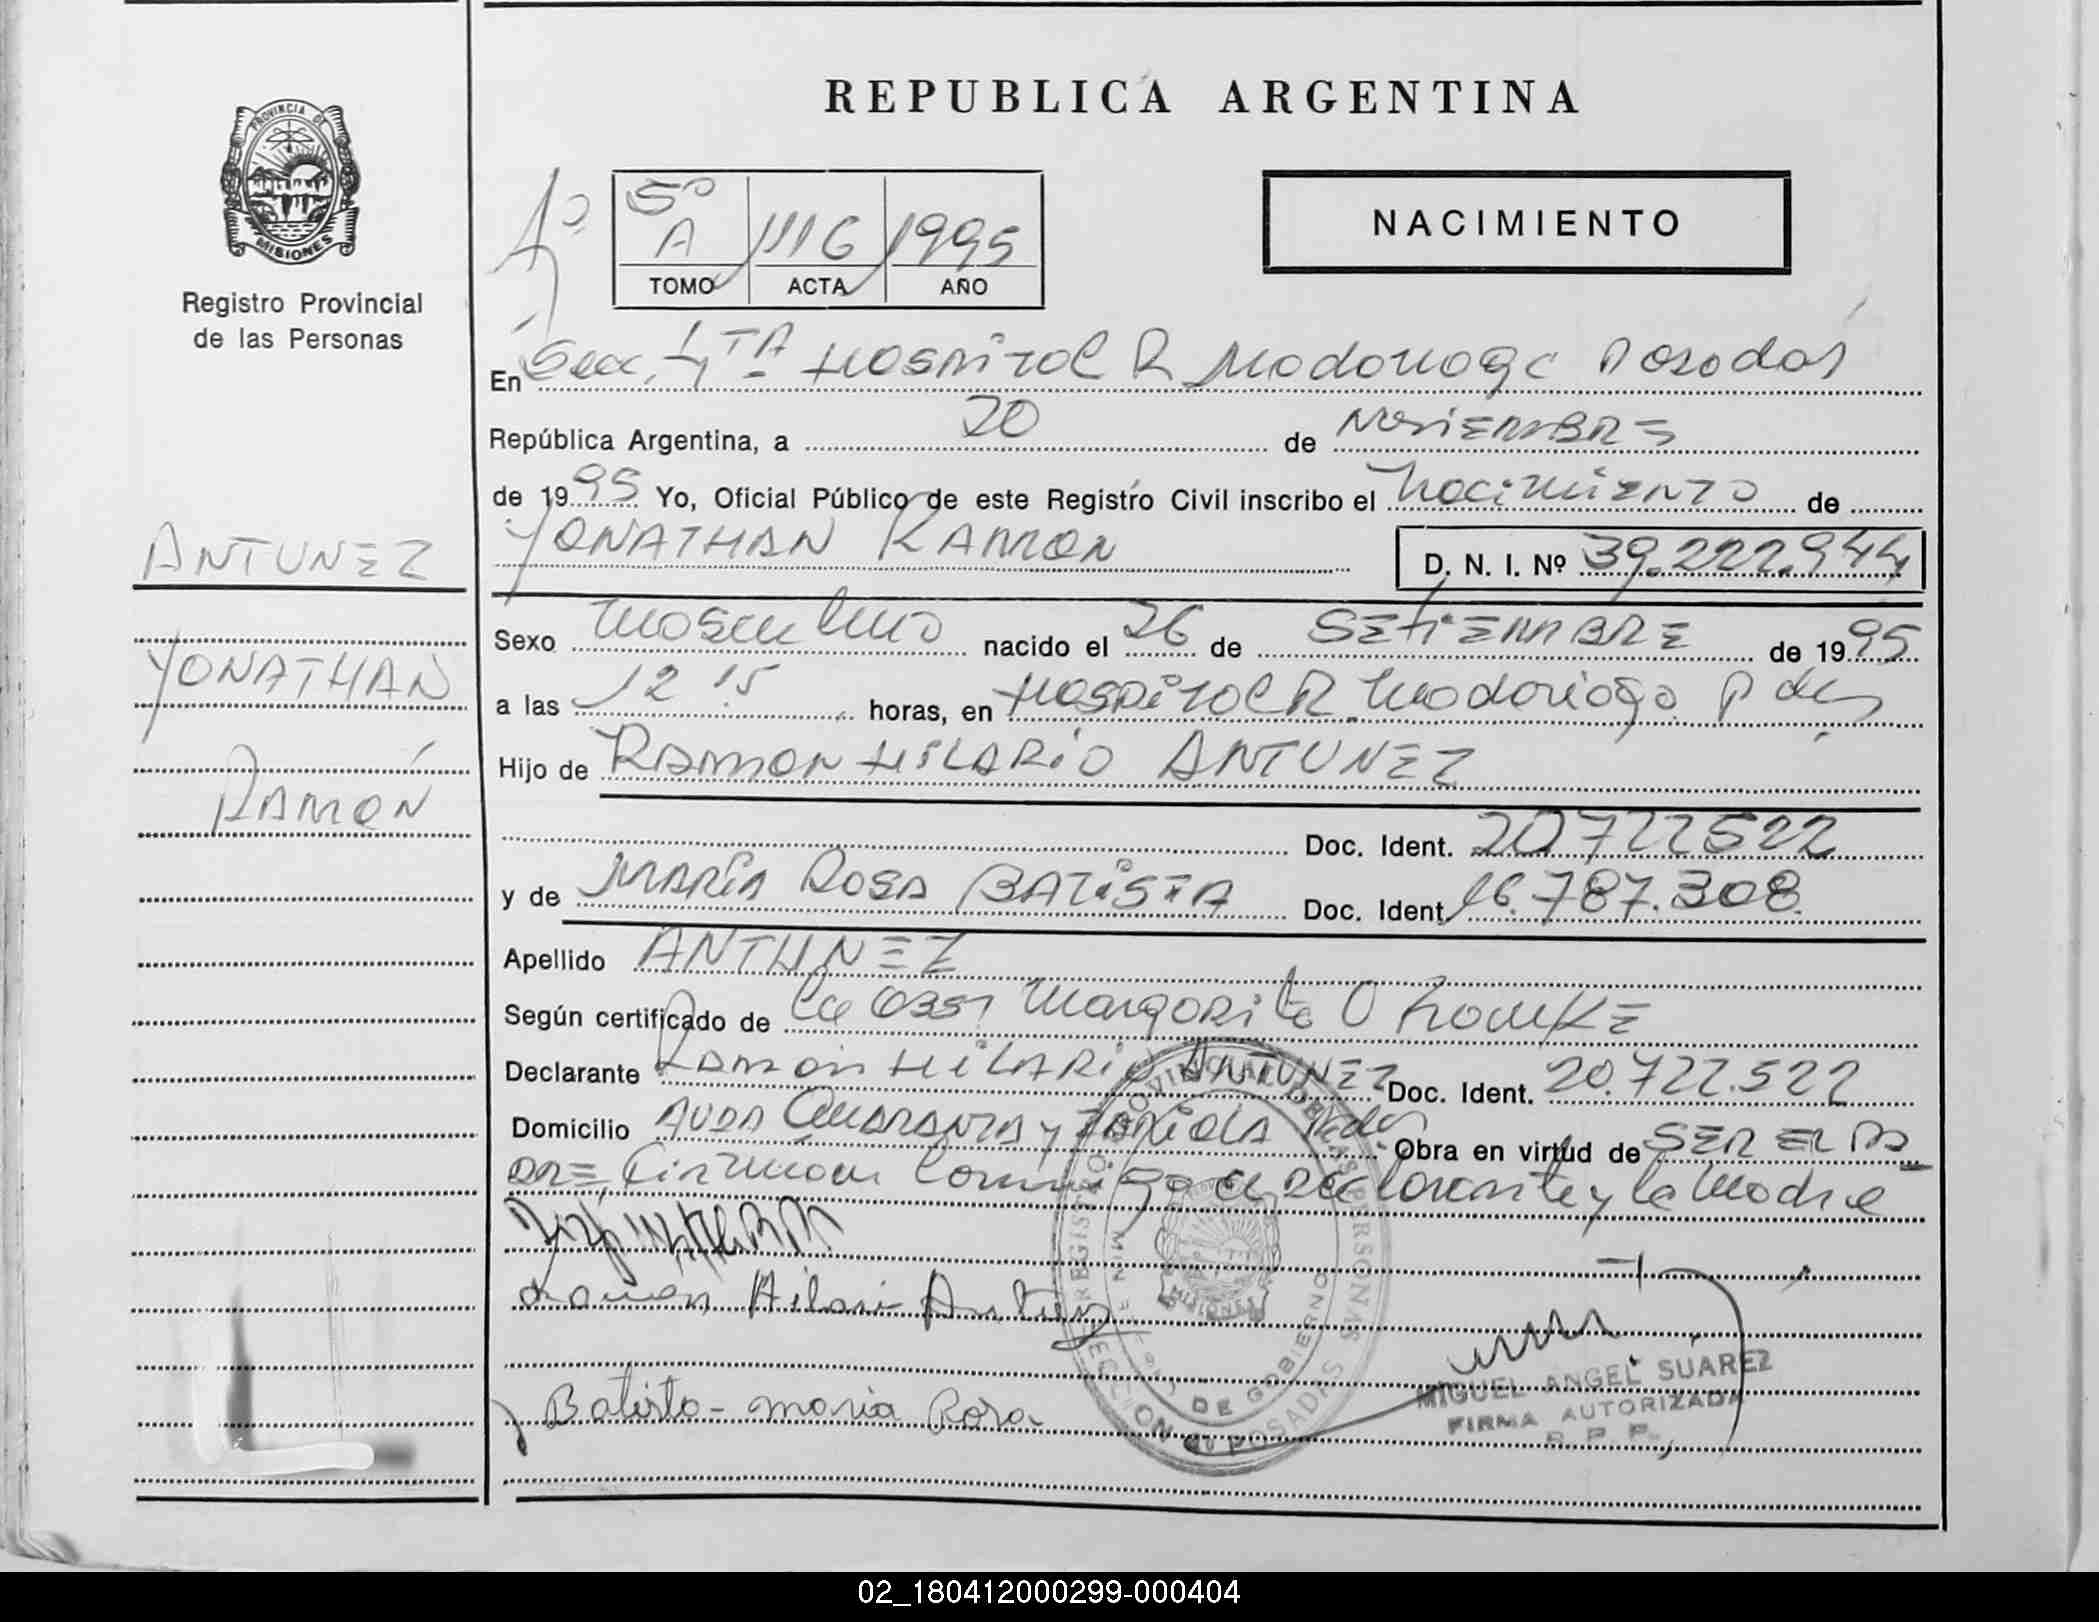 REPUBLICA ARGENTINA
PROVINCIA DE
MISIONES
Registro Provincial
de las Personas
5º
A 1116 1995
TOMO ACTA AÑO
NACIMIENTO
En Secc. 4TA Hospital R Madariaga Posadas
República Argentina, a 20 de NOVIEMBRE
de 1995 Yo, Oficial Público de este Registro Civil inscribo el Nacimiento de
YONATHAN RAMON D. N. I. Nº 39.222.944
ANTUNEZ
YONATHAN
RAMÓN
Sexo Masculino nacido el 26 de SETIEMBRE de 1995
a las 12 15 horas, en Hospital R. Madariaga Pdas
Hijo de RAMON HILARIO ANTUNEZ
Doc. Ident. 20722522
y de MARÍA ROSA BATISTA Doc. Ident. 16.787.308
Apellido ANTUNEZ
Según certificado de Margarita
Declarante RAMON HILARIO ANTUNEZ Doc. Ident. 20.722.522
Domicilio AVDA QUARANTA y Pdas Obra en virtud de SER EL PA
DRE Firman Conmigo el Declarante y la Madre
Ramon Hilari Antunez
Batista - maria Rosa
MIGUEL ANGEL SUAREZ
FIRMA AUTORIZADA
R. P. P.
02_180412000299-000404